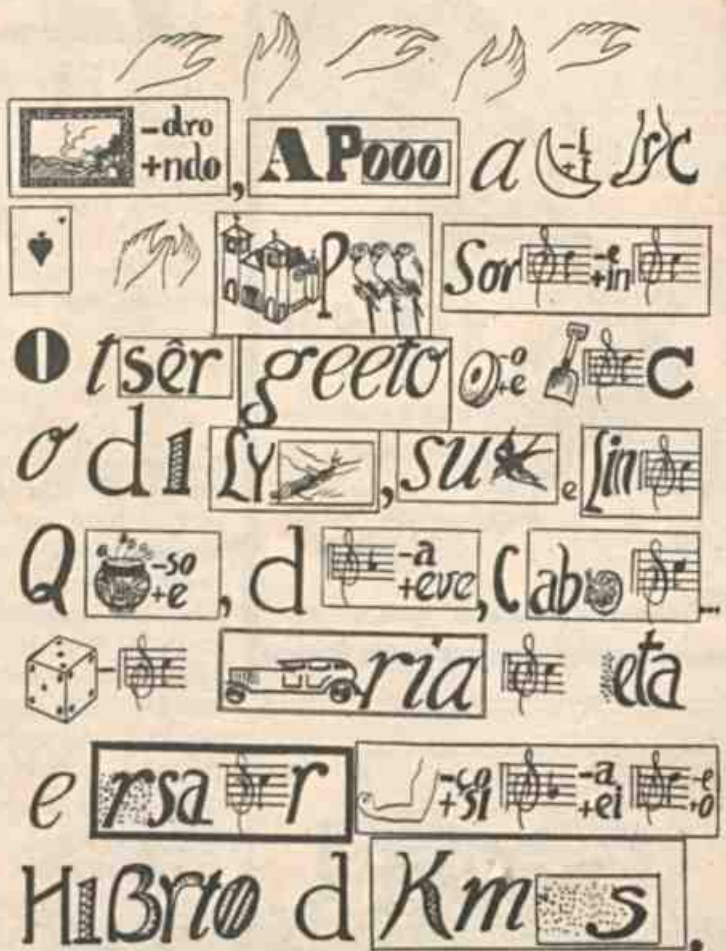 -dro
+ndo , APooo a -l +r r c
P Sor -e +in
O tsêr geeto -o +e c
o d1 Ly , su e Lin
Q -so +e , d -a +eve , C ab ...
- ria eta
e rsa r -ço +si -a +ei -e +o
H1Brto d Km s .